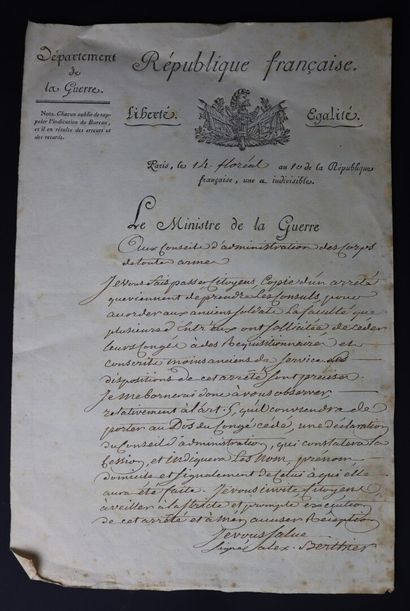 Département
de
la Guerre.
République française.
Nota. Chacun oublie de rap-
peler l'indication du Bureau,
et il en résulte des erreurs et
des retards.
Liberté.
Egalité.
Paris, le 14 floréal an 10 de la République
française, une et indivisible.
Le Ministre de la Guerre
Aux Conseils d'administration des Corps
de toute arme
Je vous fais passer Citoyens Copie d'un arrêté
que viennent de prendre Les Consuls, pour
accorder aux anciens soldats La faculté que
plusieurs d'entr'eux ont sollicitée de céder
leurs Congés à des Requisitionnaires et
Conscrits moins anciens de Service Les
dispositions de cet arrêté sont précises
Je me bornerai donc à vous observer,
relativement à l'art. 5, qu'il conviendra de
porter au Dos du Congé cédé, une déclaration
du Conseil d'administration, qui constatera la
Cession, et indiquera Les nom, prénom,
domicile et signalement de Celui à qui elle
aura été faite. Je vous invite Citoyens
à veiller à la Stricte et prompte exécution
de cet arrêté et à m'en accuser Réception
Je vous Salue
Signé alex. Berthier